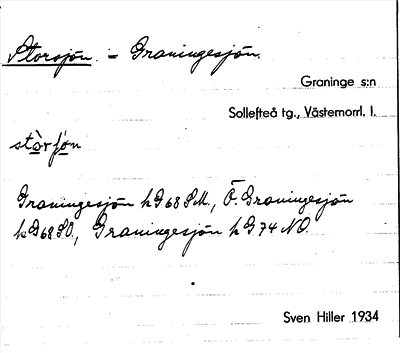 Storsjön. = Graningesjön.
Graninge s:n
Sollefteå tg., Västernorrl. l.
stòrfo̱n
Graningesjön k G 68 SM, Ö. Graningesjön
k G 68 SO., Graningesjön k G 74 NO.
Sven Hiller 1934